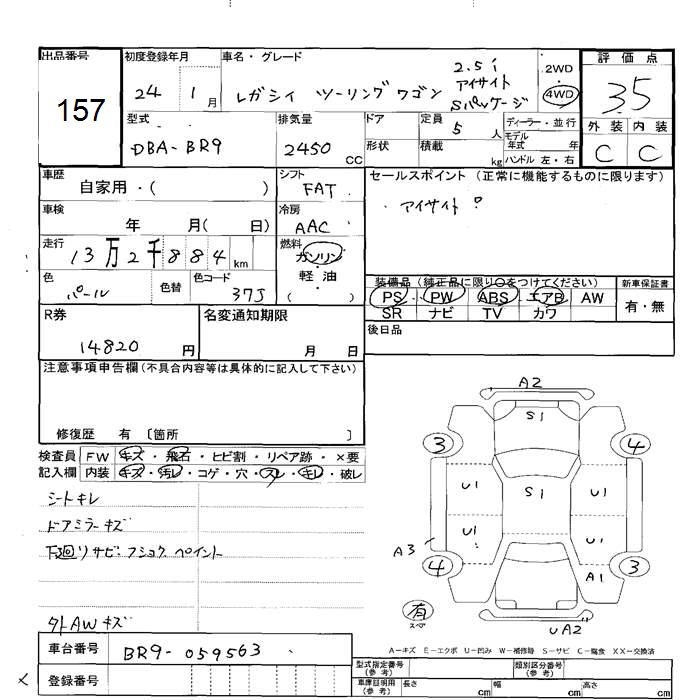 出品番号
157
初度登録年月
24 1月
車名・グレード
レガシィ ツーリングワゴン
2.5i
アイサイト
Sパッケージ
2WD
4WD
評価点
3.5
外装 内装
C C
型式
DBA-BR9
排気量
2450 CC
ドア
形状
定員
5 人
積載
kg
ディーラー・並行
モデル年式 年
ハンドル 左・右
車歴
自家用・( )
シフト
FAT
セールスポイント (正常に機能するものに限ります)
アイサイト
車検
年 月( 日)
冷房
AAC
走行
13万2千884km
燃料
ガソリン
・
軽油
( )
色
パール
色替
色コード
37J
装備品 (純正品に限り○をつけてください)
PS PW ABS エアB AW
SR ナビ TV カワ
新車保証書
有・無
R券
14820 円
名変通知期限
月 日
後日品
注意事項申告欄(不具合内容等は具体的に記入して下さい)
修復歴 有 〔箇所 〕
検査員記入欄
FW キズ・飛石・ヒビ割・リペア跡・×要
内装 キズ・汚レ・コゲ・穴・スレ・キレ・破レ
シートキレ
ドアミラーキズ
下廻りサビ・フショク ペイント
タトAWキズ
A2
S1
3 4
U1 S1 U1
U1 U1
A3
4 3
A1
有
スペア
UA2
A-キズ E-エクボ U-凹み W-補修跡 S-サビ C-腐食 XX-交換済
車台番号
BR9-059563
登録番号
型式指定番号
(参考)
類別区分番号
(参考)
車庫証明用
(参考)
長さ cm 幅 cm 高さ cm